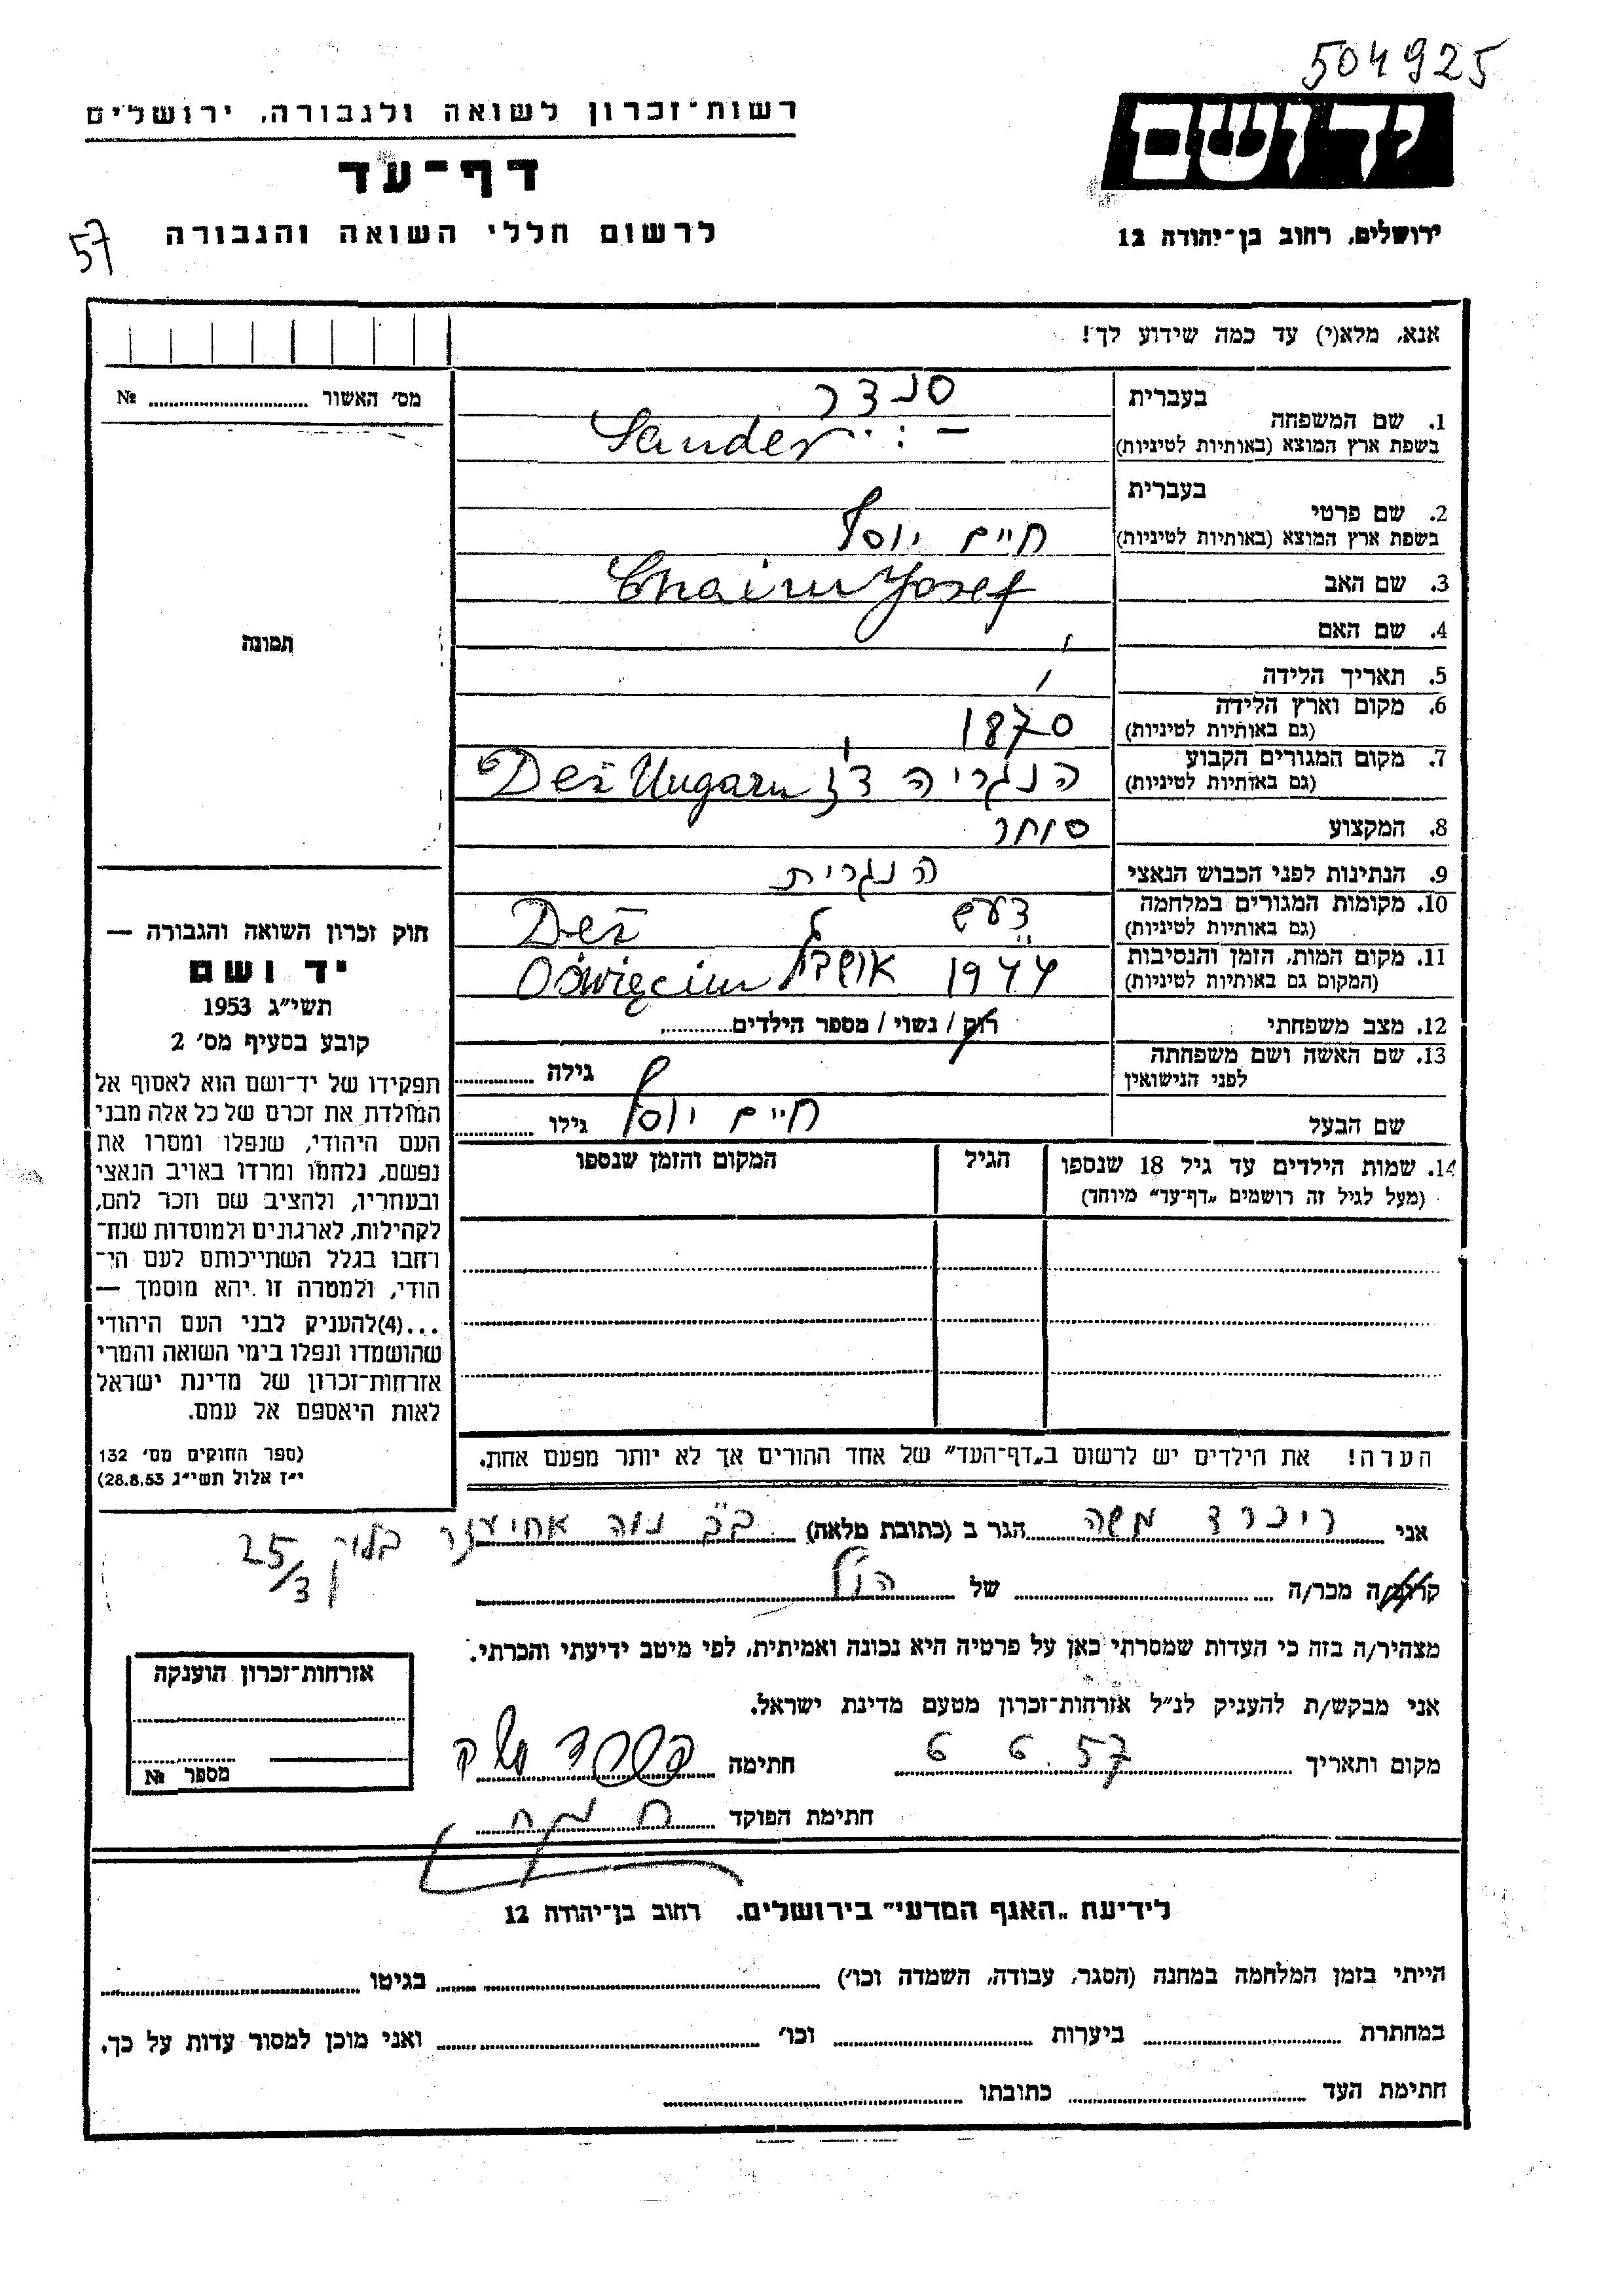 504925
רשות־זכרון לשואה ולגבורה, ירושלים
יד ושם
דף־עד
לרשום חללי השואה והגבורה
57
ירושלים, רחוב בן־יהודה 12
אנא, מלא(י) עד כמה שידוע לך!
מס׳ האשור № 
1. שם המשפחה
בעברית
סנדר
בשפת ארץ המוצא (באותיות לטיניות)
Sander
2. שם פרטי
בעברית
חיים יוסף
בשפת ארץ המוצא (באותיות לטיניות)
Chaim Josef
3. שם האב
4. שם האם
תמונה
5. תאריך הלידה
6. מקום וארץ הלידה
(גם באותיות לטיניות)
1870
7. מקום המגורים הקבוע
(גם באותיות לטיניות)
הנגריה דז Deš Ungarn
8. המקצוע סוחר
9. הנתינות לפני הכבוש הנאצי הנגרית
10. מקומות המגורים במלחמה
(גם באותיות לטיניות)
דעש Deš
11. מקום המות, הזמן והנסיבות
(המקום גם באותיות לטיניות)
1944 Oświęcim
12. מצב משפחתי רוק / נשוי / מספר הילדים
13. שם האשה ושם משפחתה
לפני הנישואין
גילה
שם הבעל חיים יוסף גילו
14. שמות הילדים עד גיל 18 שנספו
(מעל לגיל זה רושמים „דף־עד” מיוחד)
הגיל
המקום והזמן שנספו
הערה! את הילדים יש לרשום ב„דף־העד” של אחד ההורים אך לא יותר מפעם אחת.
חוק זכרון השואה והגבורה —
יד ושם
תשי״ג 1953
קובע בסעיף מס׳ 2
תפקידו של יד־ושם הוא לאסוף אל
המולדת את זכרם של כל אלה מבני
העם היהודי, שנפלו ומסרו את
נפשם, נלחמו ומרדו באויב הנאצי
ובעוזריו, ולהציב שם וזכר להם,
לקהילות, לארגונים ולמוסדות שנח־
רחבו בגלל השתייכותם לעם הי־
הודי, ולמטרה זו יהא מוסמך —
...(4)להעניק לבני העם היהודי
שהושמדו ונפלו בימי השואה והמרי
אזרחות־זכרון של מדינת ישראל
לאות היאספם אל עמם.
(ספר החוקים מס׳ 132
י״ז אלול תשי״ג 28.8.53)
אני משה הגר ב (כתובת מלאה) ב״ב נוה אחיעזר בלוק 25/3
קרוב/ה מכר/ה של הנ״ל
מצהיר/ה בזה כי העדות שמסרתי כאן על פרטיה היא נכונה ואמיתית, לפי מיטב ידיעתי והכרתי.
אני מבקש/ת להעניק לנ״ל אזרחות־זכרון מטעם מדינת ישראל.
מקום ותאריך 6 6. 57 חתימה
חתימת הפוקד
אזרחות־זכרון הוענקה
מספר №
לידיעת „האגף המדעי” בירושלים, רחוב בן־יהודה 12
הייתי בזמן המלחמה במחנה (הסגר, עבודה, השמדה וכו׳) בגיטו
במחתרת ביערות וכו׳ ואני מוכן למסור עדות על כך.
חתימת העד כתובתו